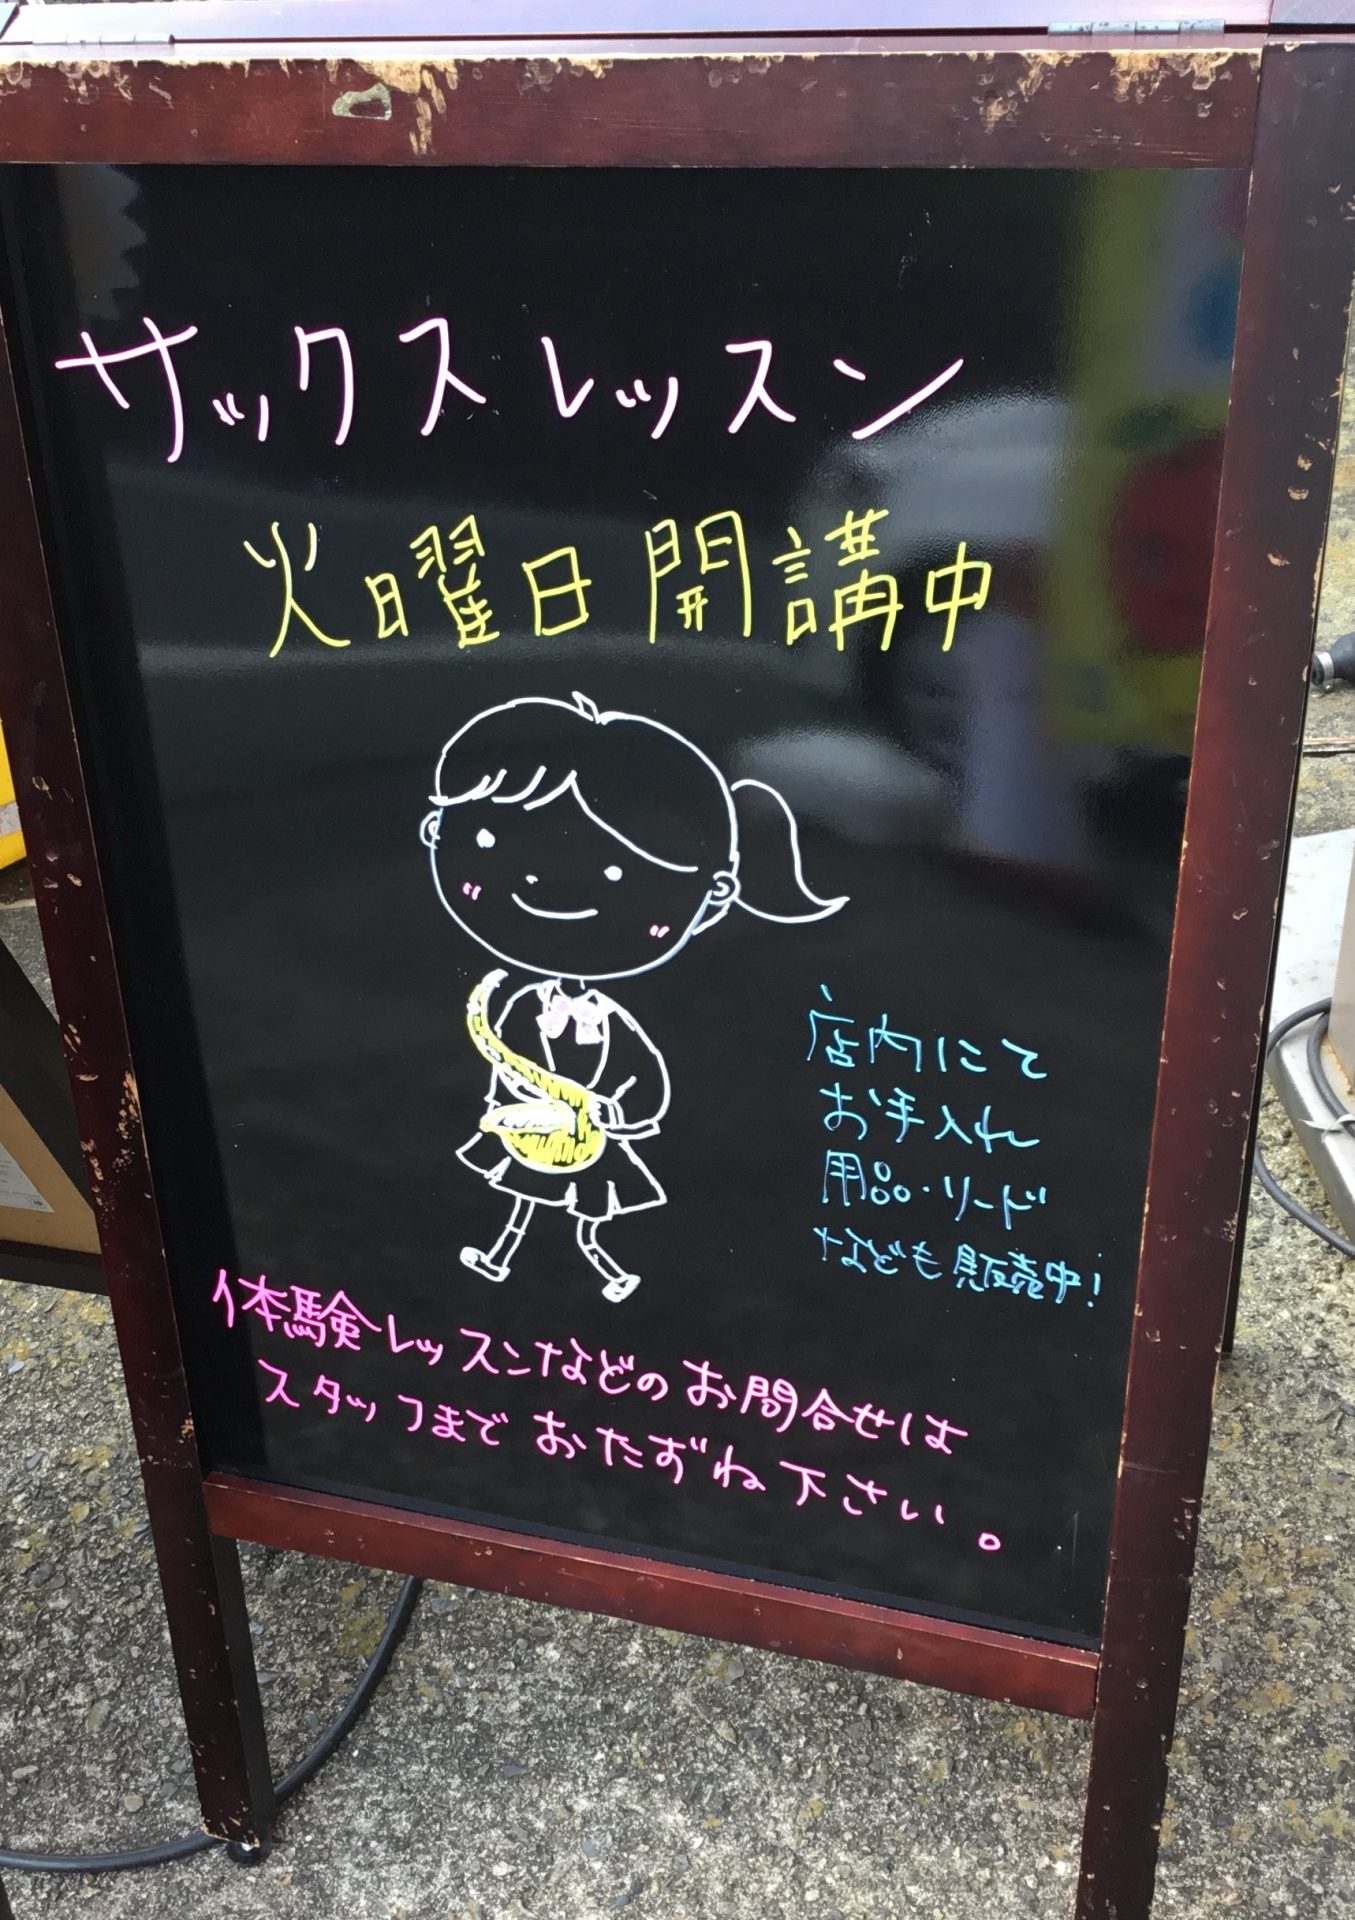 サックスレッスン
火曜日開講中
店内にて
お手入れ
用品・リード
なども販売中!
体験レッスンなどのお問合せは
スタッフまでおたずね下さい。